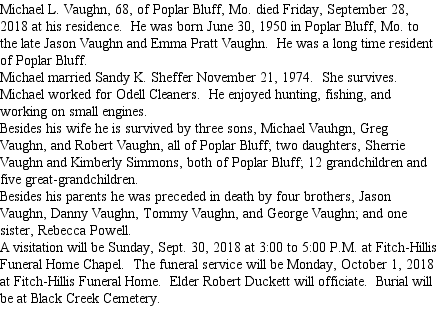 Michael L. Vaughn, 68, of Poplar Bluff, Mo. died Friday, September 28,
2018 at his residence.  He was born June 30, 1950 in Poplar Bluff, Mo. to
the late Jason Vaughn and Emma Pratt Vaughn.  He was a long time resident
of Poplar Bluff.
Michael married Sandy K. Sheffer November 21, 1974.  She survives.
Michael worked for Odell Cleaners.  He enjoyed hunting, fishing, and
working on small engines.
Besides his wife he is survived by three sons, Michael Vauhgn, Greg
Vaughn, and Robert Vaughn, all of Poplar Bluff; two daughters, Sherrie
Vaughn and Kimberly Simmons, both of Poplar Bluff; 12 grandchildren and
five great-grandchildren.
Besides his parents he was preceded in death by four brothers, Jason
Vaughn, Danny Vaughn, Tommy Vaughn, and George Vaughn; and one
sister, Rebecca Powell.
A visitation will be Sunday, Sept. 30, 2018 at 3:00 to 5:00 P.M. at Fitch-Hillis
Funeral Home Chapel.  The funeral service will be Monday, October 1, 2018
at Fitch-Hillis Funeral Home.  Elder Robert Duckett will officiate.  Burial will
be at Black Creek Cemetery.